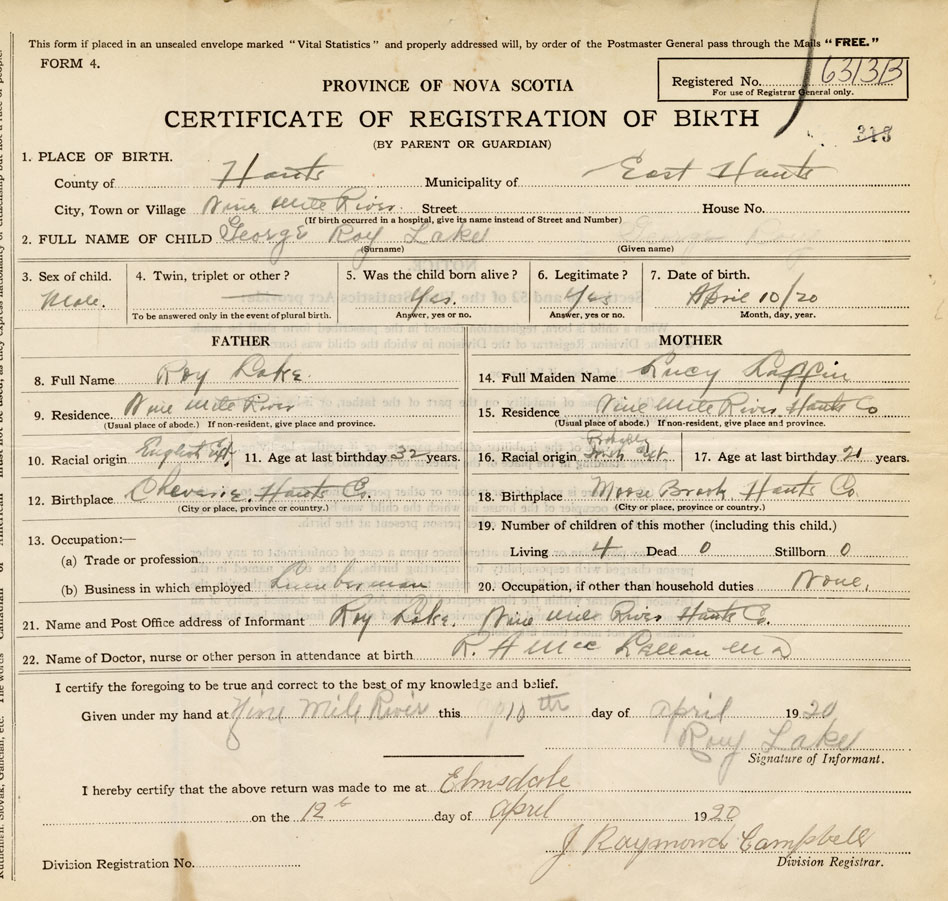 This form if placed in an unsealed envelope marked "Vital Statistics" and properly addressed will, by order of the Postmaster General pass through the Mails "FREE."
FORM 4.
Registered No. 6313B
For use of Registrar General only.
PROVINCE OF NOVA SCOTIA
CERTIFICATE OF REGISTRATION OF BIRTH
(BY PARENT OR GUARDIAN)
313
1. PLACE OF BIRTH.
County of Hants Municipality of East Hants
City, Town or Village Nine Mile River Street House No.
(If birth occurred in a hospital, give its name instead of Street and Number)
2. FULL NAME OF CHILD George Roy Lake
(Surname) (Given name)
3. Sex of child. 4. Twin, triplet or other? 5. Was the child born alive? 6. Legitimate? 7. Date of birth.
Male. — Yes. Yes April 10/20
To be answered only in the event of plural birth. Answer, yes or no. Answer, yes or no. Month, day, year.
FATHER
8. Full Name Roy Lake.
9. Residence. Nine Mile River
(Usual place of abode.) If non-resident, give place and province.
10. Racial origin English 11. Age at last birthday 32 years.
12. Birthplace Cheverie, Hants Co.
(City or place, province or country.)
13. Occupation:—
(a) Trade or profession
(b) Business in which employed Lumberman
MOTHER
14. Full Maiden Name Lucy Laffin
15. Residence Nine Mile River Hants Co
(Usual place of abode.) If non-resident, give place and province.
16. Racial origin Irish 17. Age at last birthday 21 years.
18. Birthplace Moose Brook, Hants Co.
(City or place, province or country.)
19. Number of children of this mother (including this child.)
Living 4 Dead 0 Stillborn 0
20. Occupation, if other than household duties None,
21. Name and Post Office address of Informant Roy Lake. Nine Mile River Hants Co.
22. Name of Doctor, nurse or other person in attendance at birth R. A Mac Lellan MD
I certify the foregoing to be true and correct to the best of my knowledge and belief.
Given under my hand at Nine Mile River this 10th day of april 1920
Roy Lake
Signature of Informant.
I hereby certify that the above return was made to me at Elmsdale
on the 12 day of april 1920
J Raymond Campbell
Division Registration No. Division Registrar.